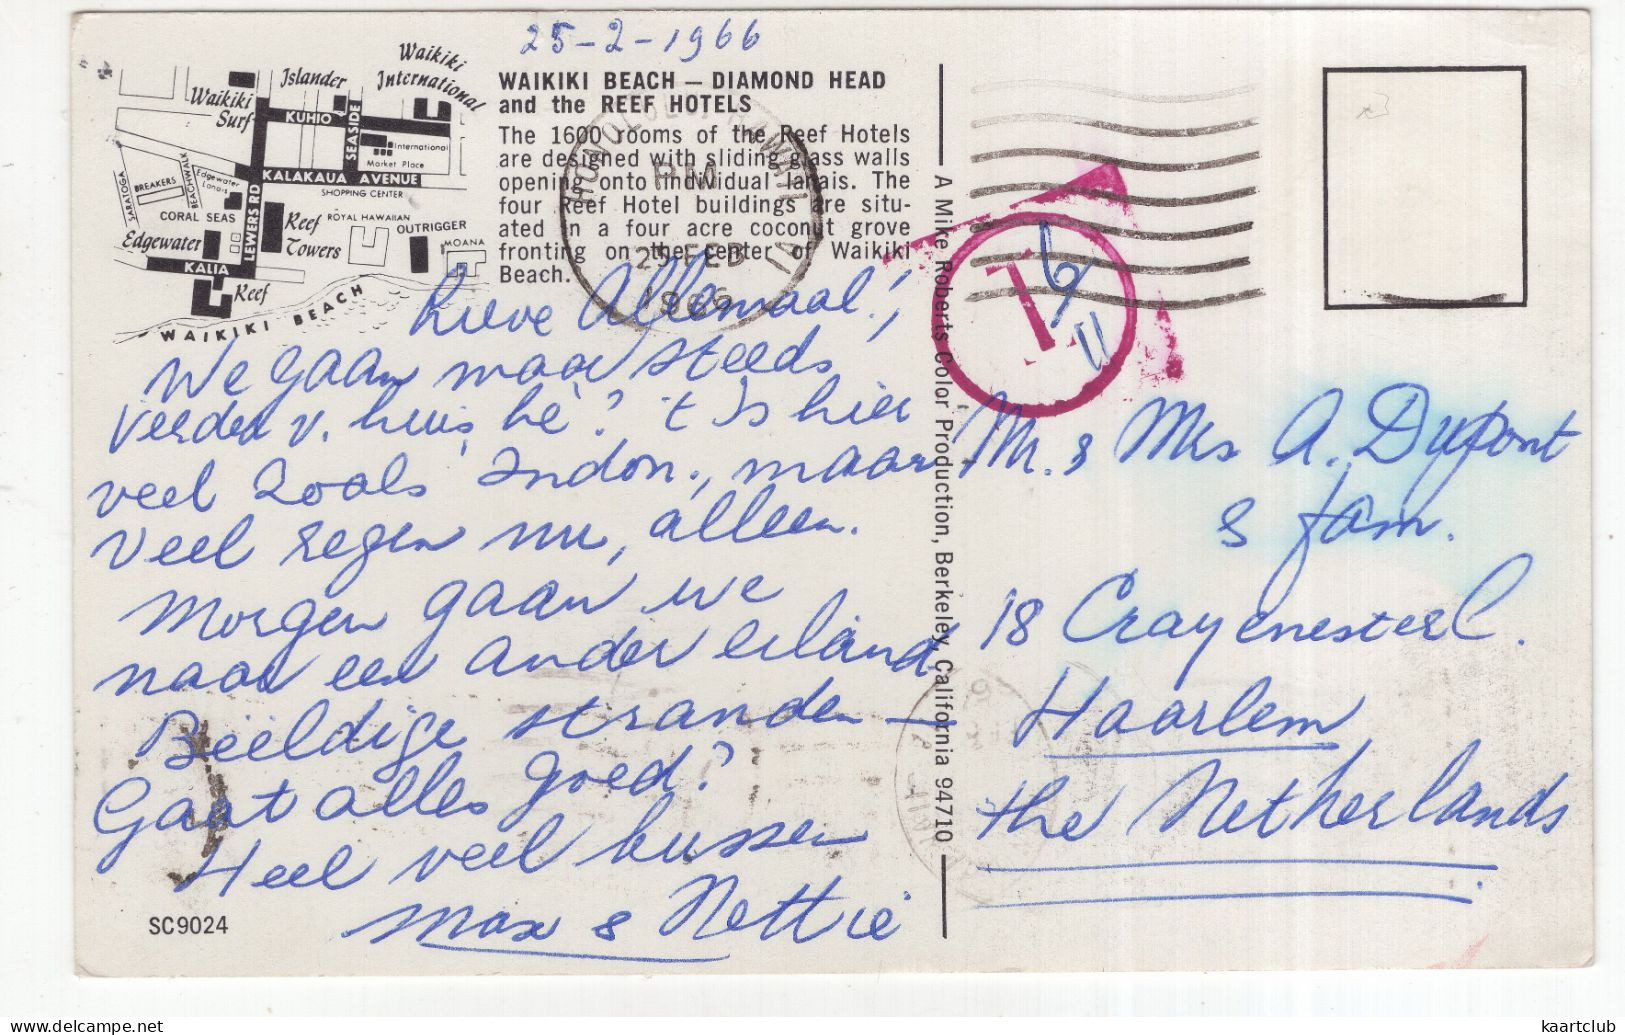 25-2-1966
Waikiki
International
Islander
Waikiki
Surf
KUHIO
SEASIDE
International
Market Place
KALAKAUA AVENUE
SHOPPING CENTER
SARATOGA
BREAKERS
BEACHWALK
Edgewater
Lanais
LEWERS RD
CORAL SEAS
Reef
Towers
ROYAL HAWAIIAN
OUTRIGGER
MOANA
Edgewater
KALIA
Reef
WAIKIKI BEACH
WAIKIKI BEACH — DIAMOND HEAD
and the REEF HOTELS
The 1600 rooms of the Reef Hotels
are designed with sliding glass walls
opening onto individual lanais. The
four Reef Hotel buildings are situ-
ated in a four acre coconut grove
fronting on the center of Waikiki
Beach.
HONOLULU, HAWAII
PM
25 FEB
1966
T
Lieve Allemaal!,
We gaan maar steeds
verder v. huis, hè? 't Is hier
veel zoals Indon., maar
veel regen nu, alleen.
Morgen gaan we
naar een ander eiland
Beëldige stranden —
Gaat alles goed?
Heel veel kussen
Max & Nettie
SC9024
A Mike Roberts Color Production, Berkeley, California 94710
M. & Mrs A. Dupont
& fam.
18 Crayenester C.
Haarlem
the Netherlands
kaartclub